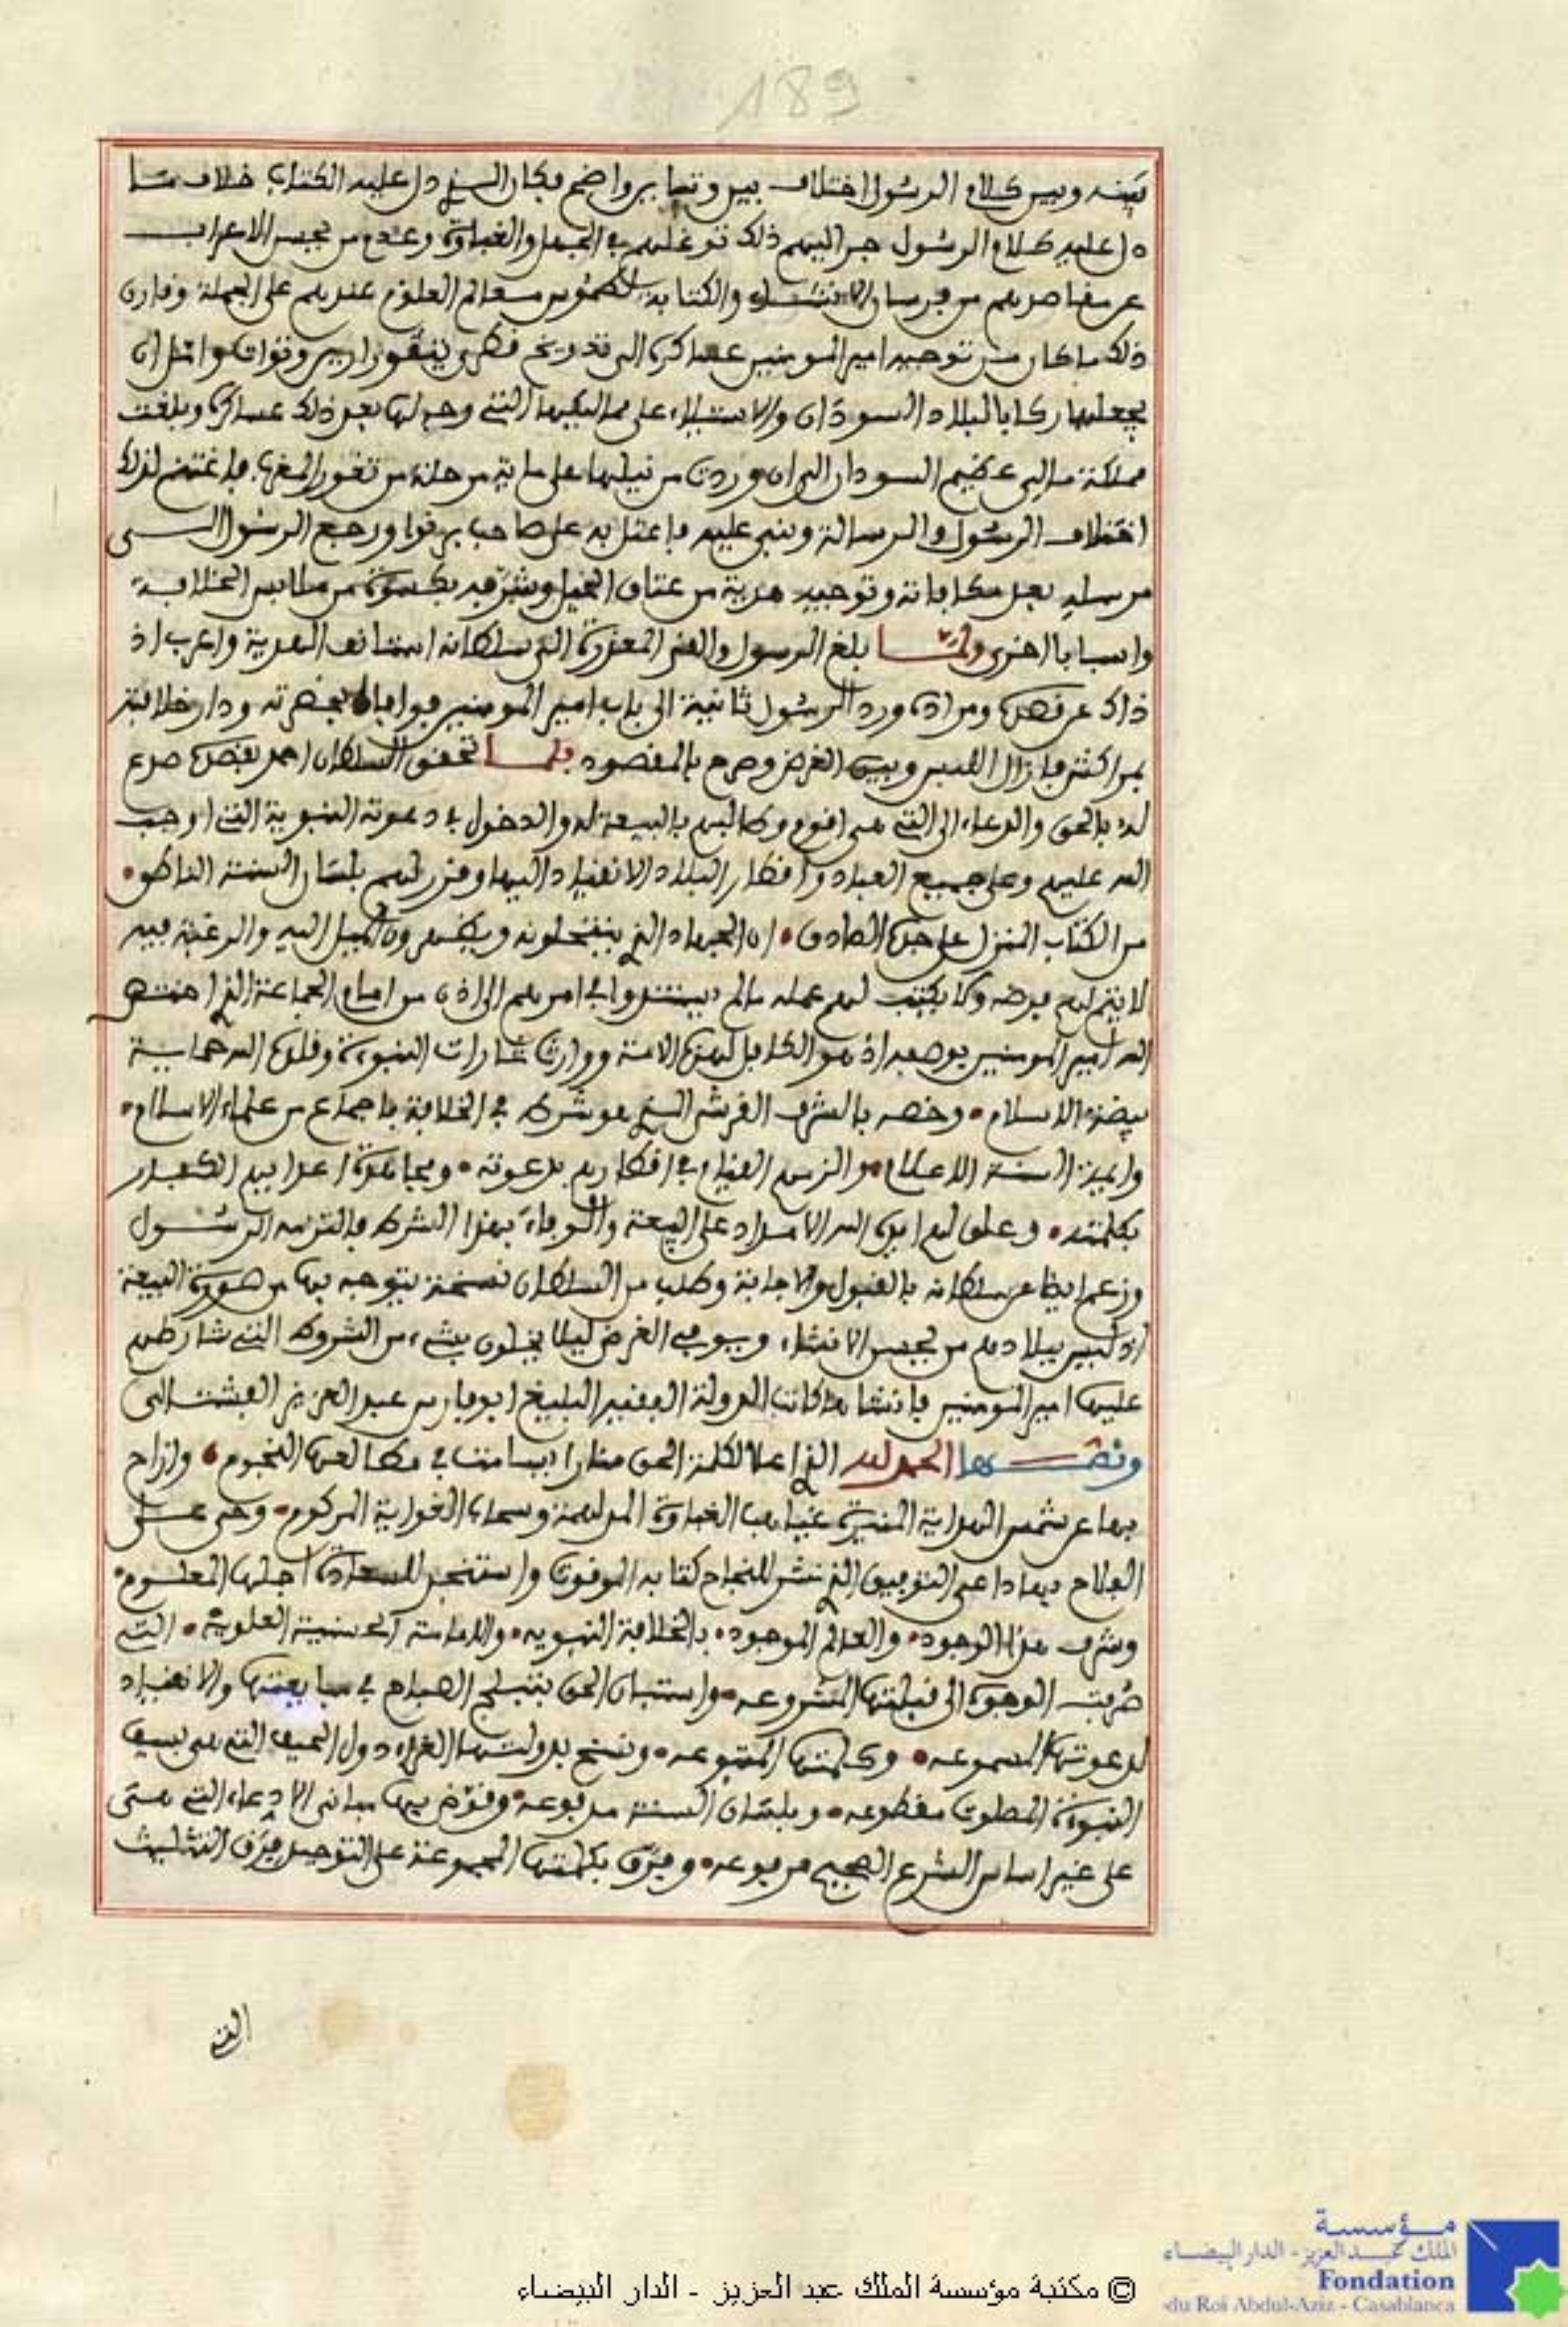 189
بينه وبين كلام الرسول اختلاف بين وتباين واضح فكان الذي دل عليه الكتاب خلاف ما
دل عليه كلام الرسول جر اليهم ذلك توغلهم في الجهل والغباوة وعدم من يحسن الاعراب
عن مقاصدهم من فرسان الانشاء والكتابة لطموس معالم العلوم عندهم على الجملة وقارن
ذلك ما كان من توجيه امير المومنين عساكره الى تقدرين وتوات
يجعلها ركابا لبلاد السودان والاستيلاء على ممالكها التي وجه لها بعد ذلك عساكره وبلغت
مملكته مالي عظيم السودان الى ان وردت من نيلها على ماية مرحلة من ثغور المغرب فاغتنم لذلك
اختلاف الرسول والرسالة وبنى عليه فاعتل به على صاحب برنوا ورجع الرسول الى
مرسله بعد مكافاته وتوجيه هدية من عتاق الخيل وشرفه بكسوة من ملابس الخلافة
واسبابا اخرى ولما بلغ الرسول والقى المعذرة الى سلطانه استانف الهدية واعرب اذ
ذاك عن قصده ومراده وورد الرسول ثانية الى باب امير المومنين فوافاه بحضرته ودار خلافته
بمراكش فازال اللبس وبين الغرض وصرح بالمقصود فلما تحقق السلطان احمد بقصده صدع
لده بالحق والدعاء الى التي هي اقوم وطالبهم بالبيعة له والدخول في دعوته النبوية التي اوجب
الله عليهم وعلى جميع العباد واقطار البلاد الانقياد اليها وقرر لهم بلسان السنة الناطق
من الكتاب المنزل على جده الصادق ان الجهاد الذي ينتحلونه ويظهرون الميل اليه والرغبة فيه
لا يتم لهم فرضه ولا يكتب لهم عمله ما لم يستندوا في امرهم الى اذن من امام الجماعة الذي اختص
الله امير المومنين بوصفه اذ هو الكافل لهذه الامة ووارث شارات النبوة وقلده الله حماية
بيضة الاسلام وخصه بالشرف القرشي الذي هو شرط في الخلافة باجماع من علماء الاسلام
وايمة السنة الاعلام والزمهم القيام في اقطارهم بدعوته ومجاهدة اعدايهم الكفار
بكلمته وعلق لهم ايده الله الامداد على البيعة والوفاء بهذا الشرط فالتزمه الرسول
وزعم ايضا عن سلطانه بالقبول والاجابة وطلب من السلطان نسخة يتوجه بها من صورة البيعة
اذ ليس ببلادهم من يحسن الانشاء ويوفي الغرض ليلا يخلون بشيء من الشروط التي شارطهم
عليها امير المومنين فانشاها كاتب الدولة الفقيه البليغ ابو فارس عبد العزيز الفشتالي
ونصها الحمد لله الذي اعلا لكلمة الحق منارا يسامت في مطالعها النجوم وازاح
بها عن شمس الهداية المنيرة غياهب الغباوة المدلهمة وسحاب الغواية المركوم وحى على
الفلاح بها داعي التوفيق الذي نشر للنجاح كتابه الموقوت واستنجز للسعادة اجلها المعلوم
وشرف هذا الوجود والعالم الموجود بالخلافة النبويه والامامة الحسنية العلويه التي
صرفت الوجوه الى قبلتها المشروعه واستبان الحق بتبلج الصباح في مبايعتها والانقياد
لدعوتها المسموعه وكلمتها المتبوعه ونسخ بدولتها الغراء دول الحيف التي هي بسيف
النبوة المصلوت مقطوعه وبلسان السنة مدفوعه وقوض بها مباني الادعاء التي هي
على غير اساس الشرع الصحيح مرفوعه وفرق بكلمتها المجموعة على التوحيد فرق التثليث
التي
مؤسسة
الملك عبد العزيز - الدار البيضاء
Fondation
du Roi Abdul-Aziz - Casablanca
© مكتبة مؤسسة الملك عبد العزيز - الدار البيضاء